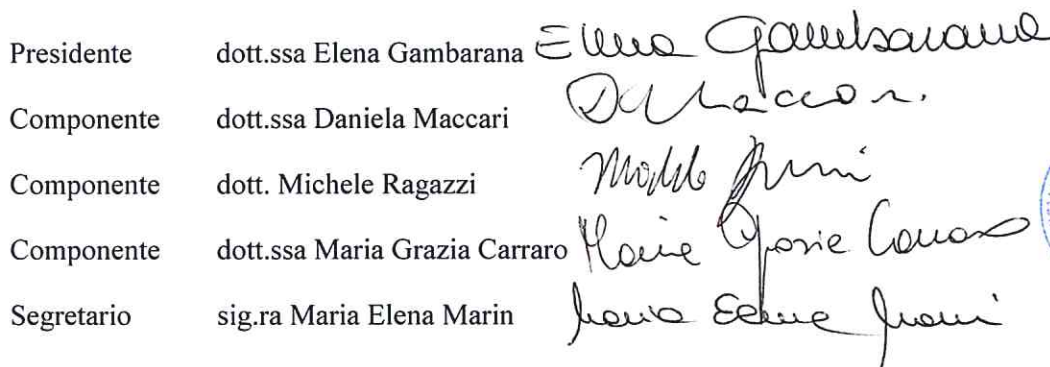 Presidente dott.ssa Elena Gambarana Elena Gambarana
Componente dott.ssa Daniela Maccari D Maccari
Componente dott. Michele Ragazzi
Componente dott.ssa Maria Grazia Carraro Maria Grazia Carraro
Segretario sig.ra Maria Elena Marin Maria Elena Marin